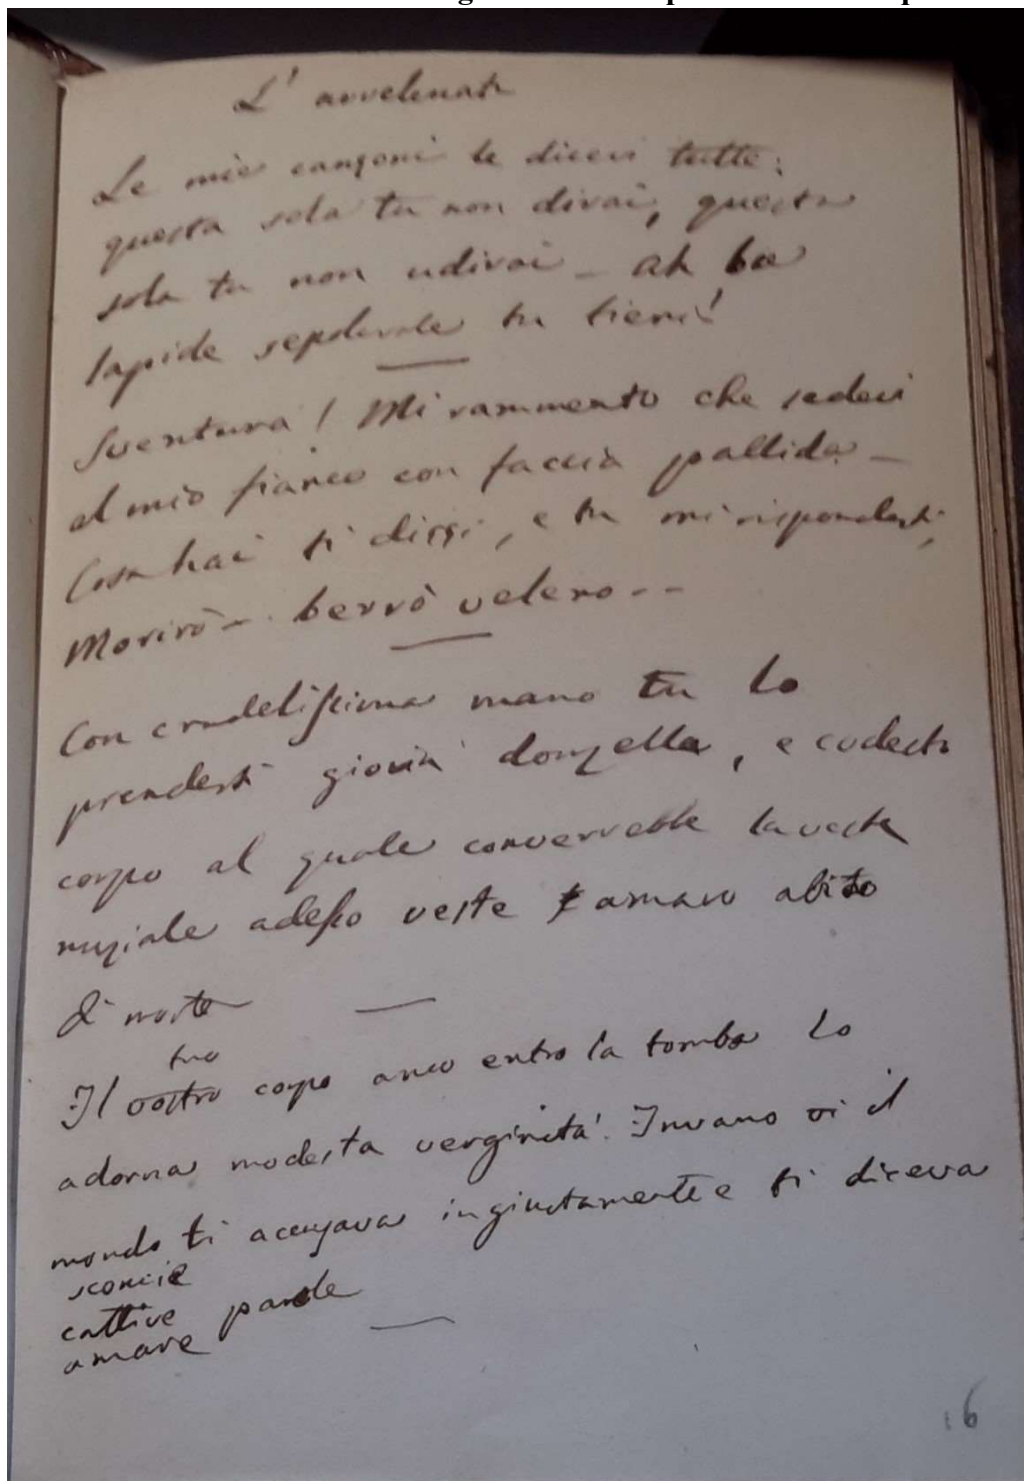 L' avvelenata
Le mie canzoni le dicevi tutte:
questa sola tu non dirai, questa
sola tu non udirai – ah la
lapide sepolcrale tu tieni!
Sventura! Mi rammento che sedevi
al mio fianco con faccia pallida –
Cosa hai ti dissi, e tu mi rispondesti,
Morirò – berrò veleno - -
Con crudelissima mano tu lo
prendesti giovin donzella, e codesto
corpo al quale converrebbe la veste
nuziale adesso veste amaro abito
di morte
tuo
Il vostro corpo anco entro la tomba lo
adorna modesta verginità. Invano vi il
mondo ti accusava ingiustamente e ti diceva
sconcie
cattive parole
amare
16